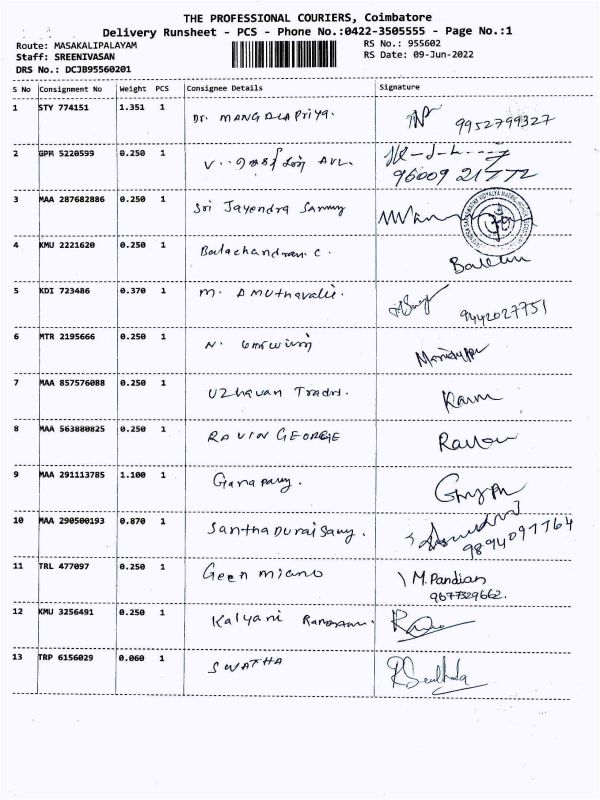 THE PROFESSIONAL COURIERS, Coimbatore
Delivery Runsheet - PCS - Phone No.:0422-3505555 - Page No.:1
Route: MASAKALIPALAYAM
RS No.: 955602
Staff: SREENIVASAN
RS Date: 09-Jun-2022
DRS No.: DCJB95560201
S No Consignment No Weight PCS Consignee Details Signature
1 STY 774151 1.351 1 Dr. MANGALAPriya. 9952799327
2 GPM 5220599 0.250 1 V. AVL. 96009 21772
3 MAA 287682886 0.250 1 Sri Jayendra Samy
4 KMU 2221620 0.250 1 Balachandran. C.
5 KDI 723486 0.370 1 M. Amuthavalli. 9442027751
6 MTR 2195666 0.250 1 N.
7 MAA 857576088 0.250 1 Uzhavan Tradrs.
8 MAA 563880825 0.250 1 RAVIN GEORGE
9 MAA 291113785 1.100 1 Ganapathy.
10 MAA 290500193 0.870 1 SanthaDuraiSamy. 9894097764
11 TRL 477097 0.250 1 Geen miano M. Pandian
9677329662.
12 KMU 3256491 0.250 1 Kalyani
13 TRP 6156029 0.060 1 SWATHA